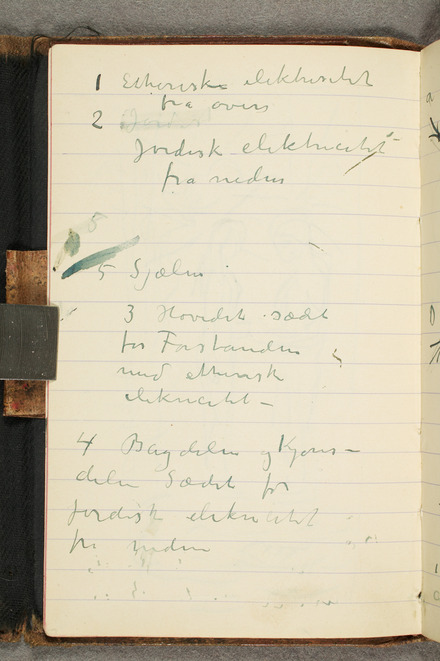 1 Etherisk elektrisitet
fra overs
2
Jordisk elektricitet -
fra nedus
5
5 Sjælen
3 Hovedet sædet
for Forstanden
med etherisk
elekricitet -
4 Bagdelen og Kjøns-
delen Sædet for
jordisk elekricitet
fra neden